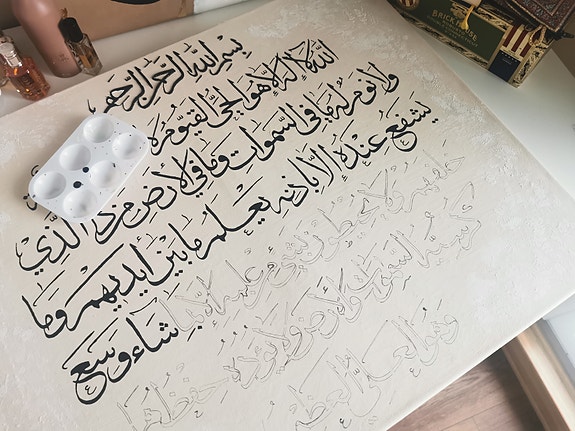 بِسْمِ اللهِ الرَّحْمٰنِ الرَّحِيمِ
اللهُ لَا إِلٰهَ إِلَّا هُوَ الْحَيُّ الْقَيُّومُ
وَلَا نَوْمٌ لَهُ مَا فِي السَّمٰوَاتِ وَمَا فِي الْأَرْضِ مَنْ ذَا الَّذِي
يَشْفَعُ عِنْدَهُ إِلَّا بِإِذْنِهِ يَعْلَمُ مَا بَيْنَ أَيْدِيهِمْ وَمَا
خَلْفَهُمْ وَلَا يُحِيطُونَ بِشَيْءٍ مِنْ عِلْمِهِ إِلَّا بِمَا شَاءَ وَسِعَ
كُرْسِيُّهُ السَّمٰوَاتِ وَالْأَرْضَ وَلَا يَؤُدُهُ حِفْظُهُمَا
وَهُوَ الْعَلِيُّ الْعَظِيمُ
BRICK HOUSE